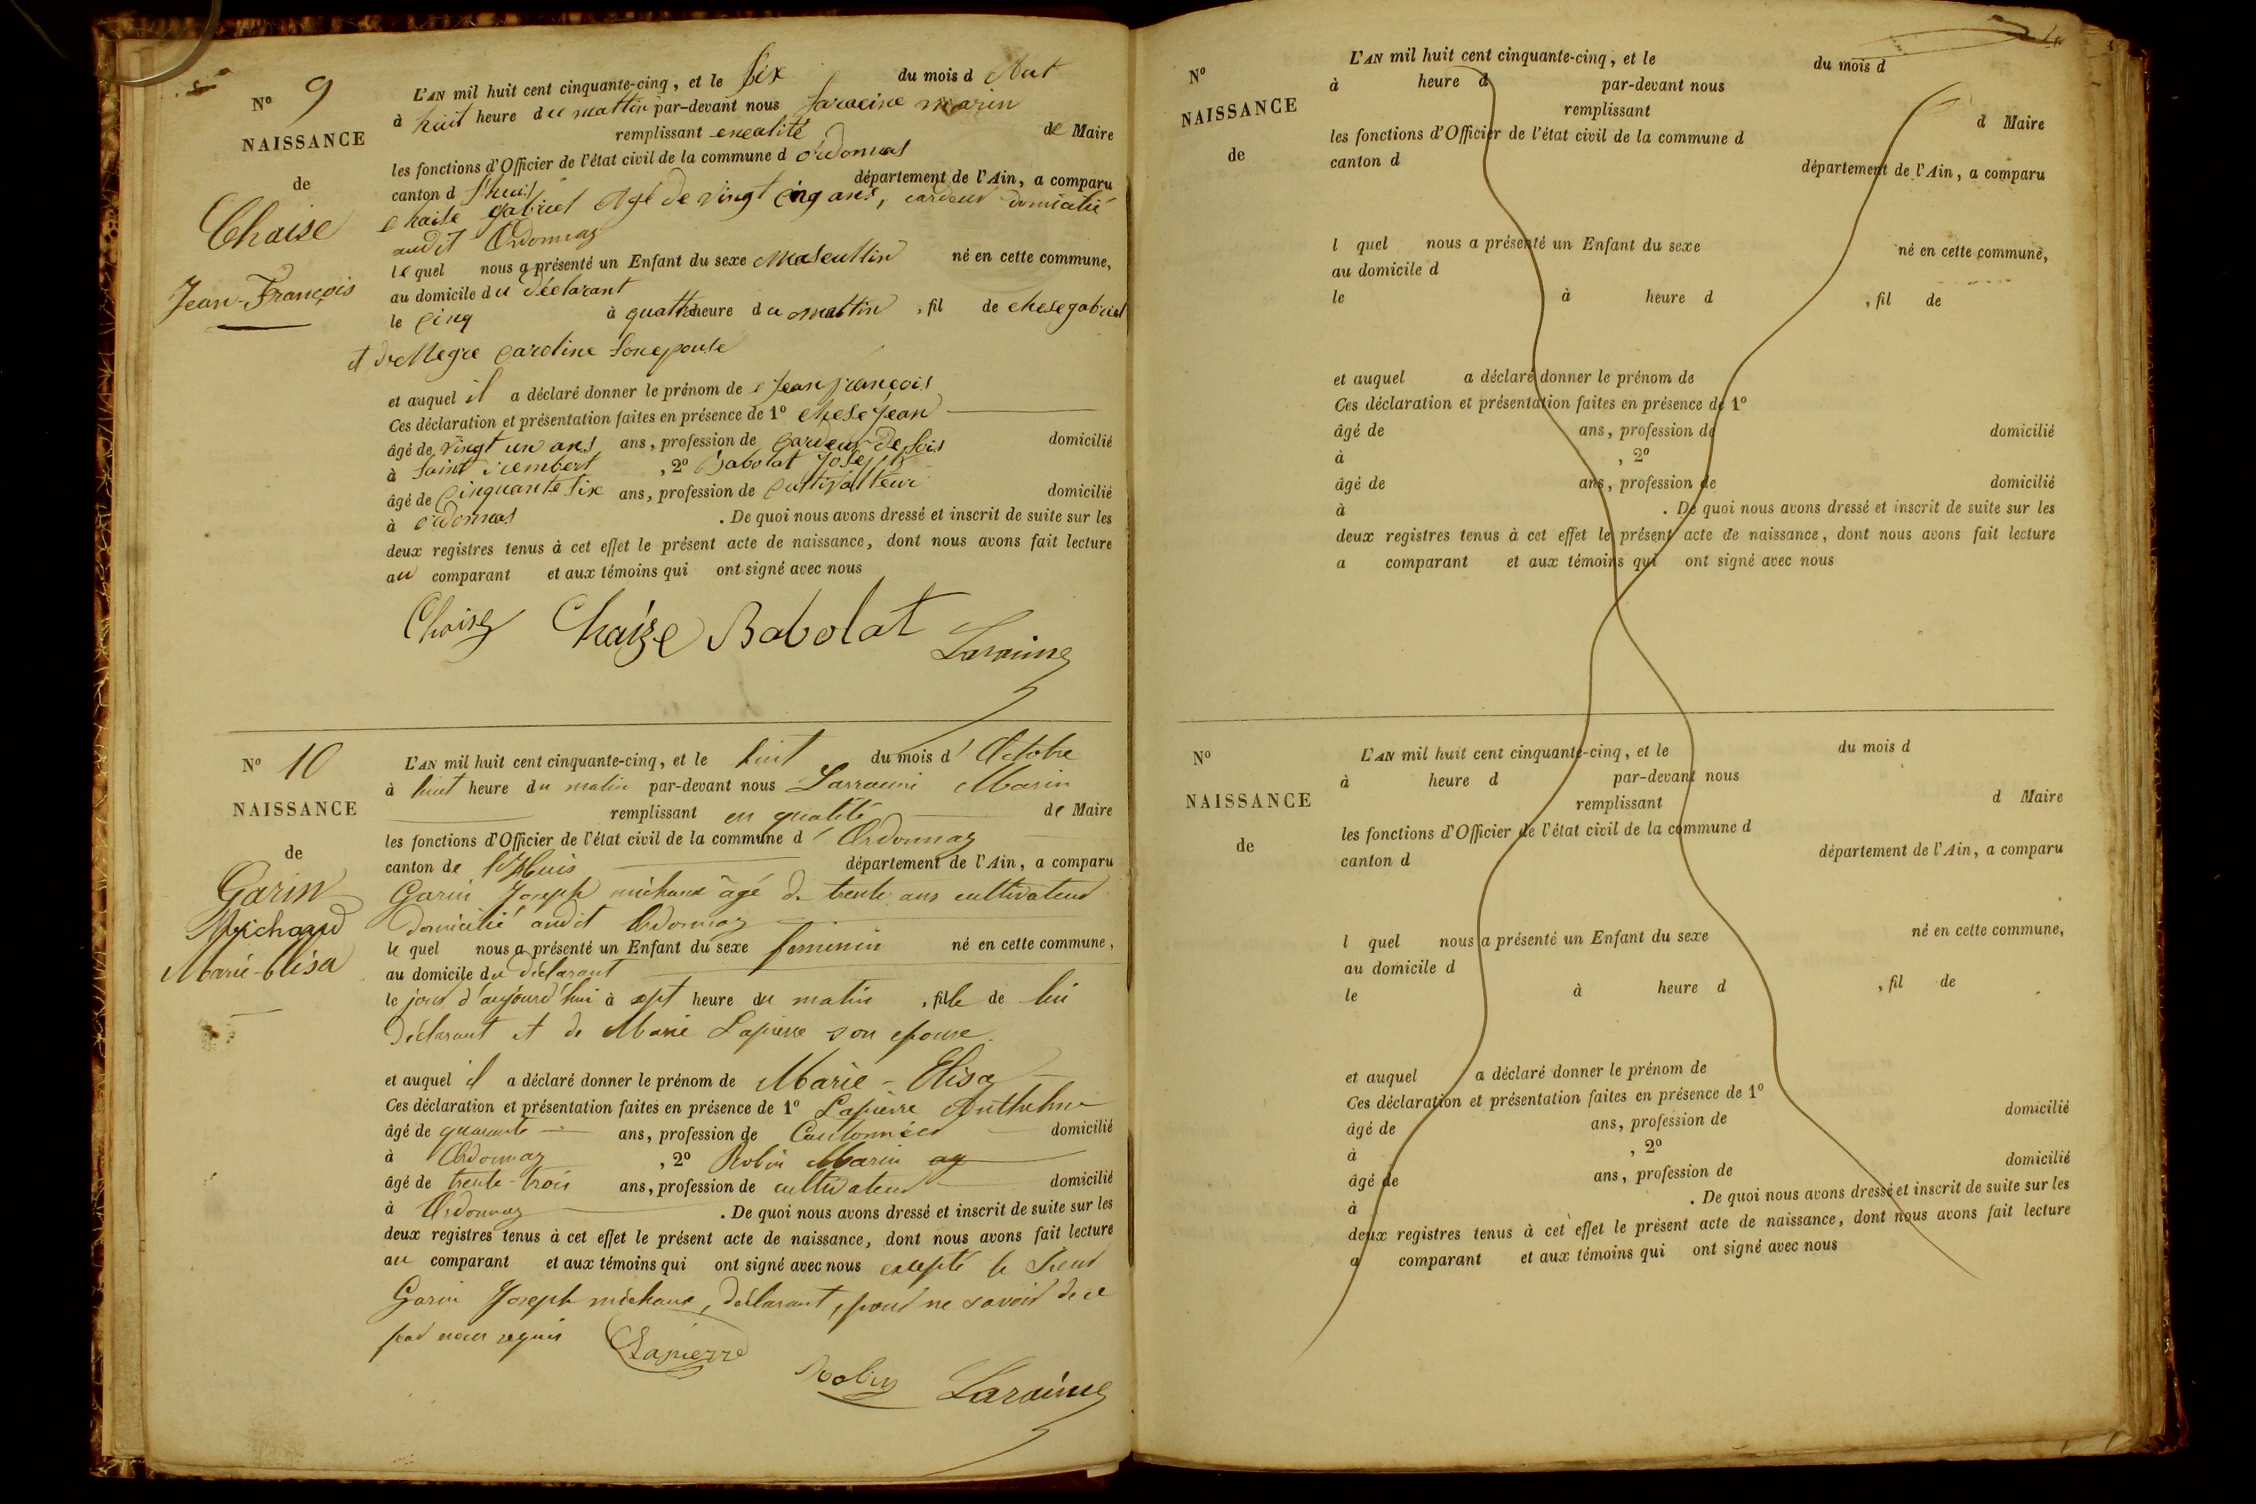 N° 9
NAISSANCE
de
Chaise
Jean-François
L'AN mil huit cent cinquante-cinq, et le six du mois d Aut
à huit heure du mattin par-devant nous Laracine marin
remplissant enealité de Maire
les fonctions d'Officier de l'état civil de la commune d ordonnas
canton d l'huis département de l'Ain, a comparu
chaise gabriel agé de vingt cinq ans, cardeur domicilié
audit Ordonnaz
le quel nous a présenté un Enfant du sexe Masculin né en cette commune,
au domicile du déclarant
le cinq à quattre heure du mattin, fil de chese gabriel
et de Megre caroline son epouse
et auquel il a déclaré donner le prénom de jean françois
Ces déclaration et présentation faites en présence de 1° chese jean
âgé de vingt un ans ans, profession de cardeur de sois domicilié
à saint rembert, 2° Babolat joseph
âgé de cinquante six ans, profession de cultivatteur domicilié
à ordonnas. De quoi nous avons dressé et inscrit de suite sur les
deux registres tenus à cet effet le présent acte de naissance, dont nous avons fait lecture
au comparant et aux témoins qui ont signé avec nous
Chaise Chaize Babolat
N° 10
NAISSANCE
de
Garin
Michaud
Marie-Elisa
L'AN mil huit cent cinquante-cinq, et le huit du mois d'Octobre
à huit heure du matin par-devant nous Marin
remplissant en qualité de Maire
les fonctions d'Officier de l'état civil de la commune d'Ordonnaz
canton de l'Huis département de l'Ain, a comparu
Garin Joseph michaud âgé de trente ans cultivateur
Domicilié audit Ordonnaz
le quel nous a présenté un Enfant du sexe feminin né en cette commune,
au domicile du déclarant
le jour d'aujourd'hui à sept heure du matin, fille de lui
Déclarant et de Marie Lapierre son epouse.
et auquel il a déclaré donner le prénom de Marie - Elisa
Ces déclaration et présentation faites en présence de 1° Lapierre Anthelme
âgé de quarante ans, profession de Cantonnier domicilié
à Ordonnaz, 2° Robin Marin
âgé de trente-trois ans, profession de cultivateur domicilié
à Ordonnaz. De quoi nous avons dressé et inscrit de suite sur les
deux registres tenus à cet effet le présent acte de naissance, dont nous avons fait lecture
au comparant et aux témoins qui ont signé avec nous excepté le sieur
Garin Joseph michaud, déclarant, pour ne savoir de ce
par nous requis
Lapierre
Robin
N°
NAISSANCE
de
L'AN mil huit cent cinquante-cinq, et le du mois d
à heure d par-devant nous
remplissant d Maire
les fonctions d'Officier de l'état civil de la commune d
canton d département de l'Ain, a comparu
l quel nous a présenté un Enfant du sexe né en cette commune,
au domicile d
le à heure d, fil de
et auquel a déclaré donner le prénom de
Ces déclaration et présentation faites en présence de 1°
âgé de ans, profession de domicilié
à, 2°
âgé de ans, profession de domicilié
à. De quoi nous avons dressé et inscrit de suite sur les
deux registres tenus à cet effet le présent acte de naissance, dont nous avons fait lecture
a comparant et aux témoins qui ont signé avec nous
N°
NAISSANCE
de
L'AN mil huit cent cinquante-cinq, et le du mois d
à heure d par-devant nous
remplissant d Maire
les fonctions d'Officier de l'état civil de la commune d
canton d département de l'Ain, a comparu
l quel nous a présenté un Enfant du sexe né en cette commune,
au domicile d
le à heure d, fil de
et auquel a déclaré donner le prénom de
Ces déclaration et présentation faites en présence de 1°
âgé de ans, profession de domicilié
à, 2°
âgé de ans, profession de domicilié
à. De quoi nous avons dressé et inscrit de suite sur les
deux registres tenus à cet effet le présent acte de naissance, dont nous avons fait lecture
a comparant et aux témoins qui ont signé avec nous